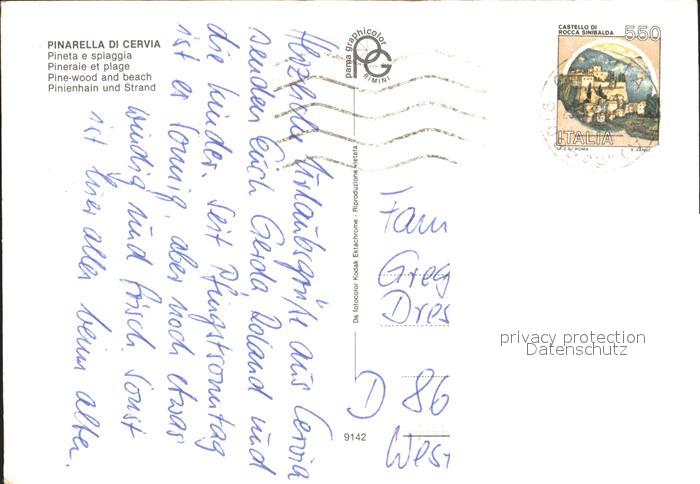 PINARELLA DI CERVIA
Pineta e spiaggia
Pineraie et plage
Pine-wood and beach
Pinienhain und Strand
Herzliche Urlaubsgrüße aus Cervia
senden Euch Gerda Roland und
die Kinder. Seit Pfingstsonntag
ist es sonnig, aber noch etwas
windig und frisch. Sonst
ist hier alles beim alten.
parma graphicolor
PG
RIMINI
Da fotocolor Kodak Ektachrome - Riproduzione vietata
9142
CASTELLO DI
ROCCA SINIBALDA
550
ITALIA
Fam
Greg
Dres
D 86
West
privacy protection
Datenschutz